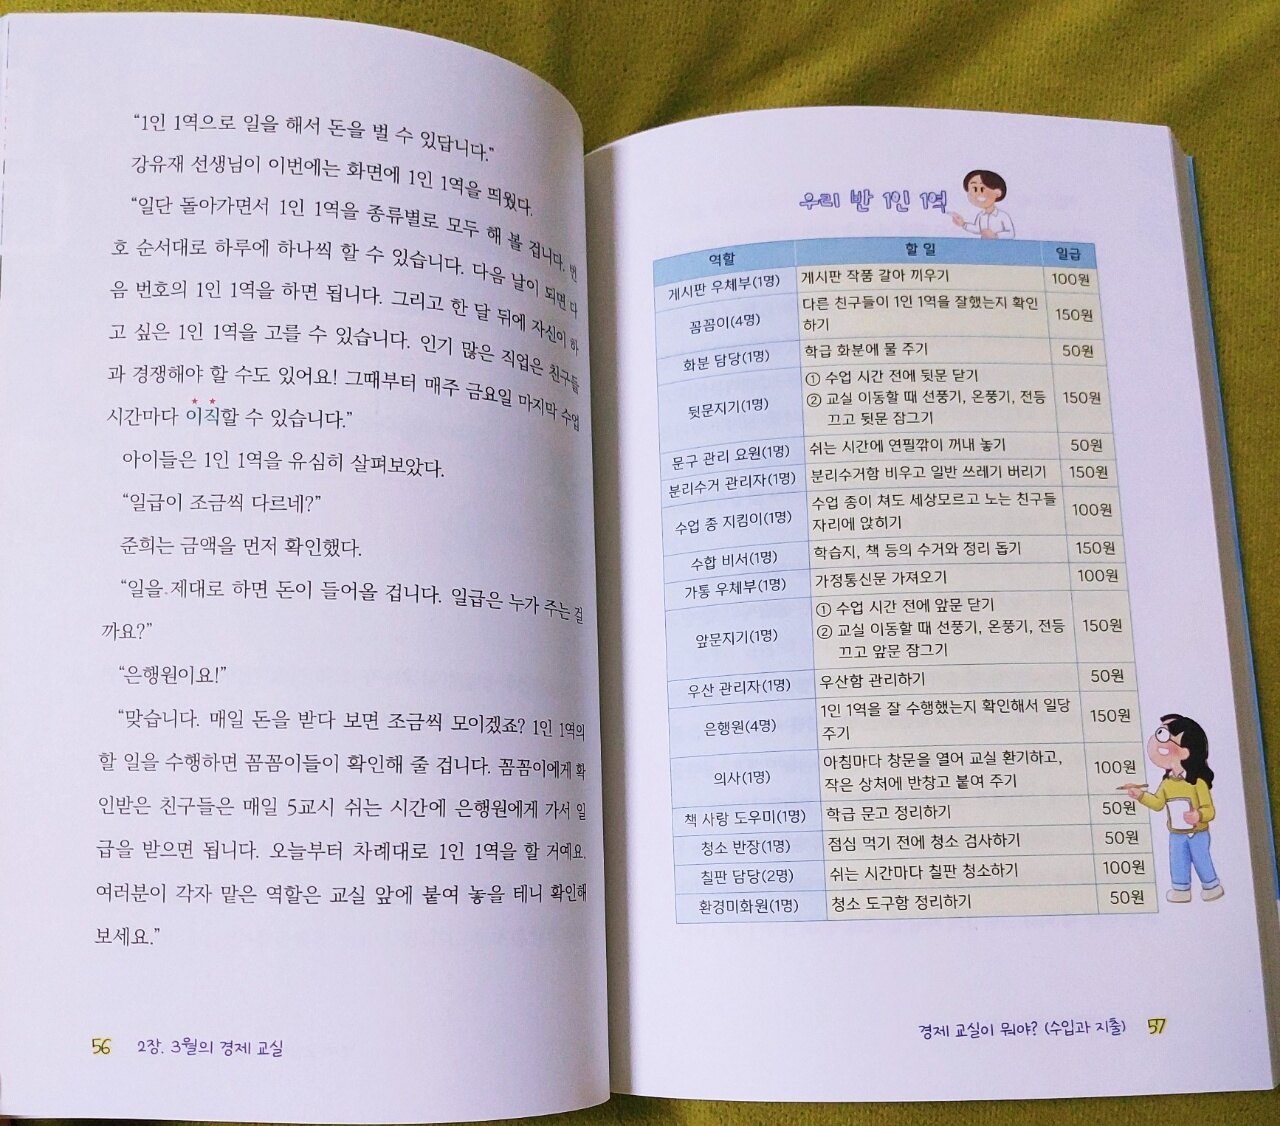 “1인 1역으로 일을 해서 돈을 벌 수 있답니다.”
강유재 선생님이 이번에는 화면에 1인 1역을 띄웠다.
“일단 돌아가면서 1인 1역을 종류별로 모두 해 볼 겁니다. 번
호 순서대로 하루에 하나씩 할 수 있습니다. 다음 날이 되면 다
음 번호의 1인 1역을 하면 됩니다. 그리고 한 달 뒤에 자신이 하
고 싶은 1인 1역을 고를 수 있습니다. 인기 많은 직업은 친구들
과 경쟁해야 할 수도 있어요! 그때부터 매주 금요일 마지막 수업
시간마다 이직할 수 있습니다.”
아이들은 1인 1역을 유심히 살펴보았다.
“일급이 조금씩 다르네?”
준희는 금액을 먼저 확인했다.
“일을 제대로 하면 돈이 들어올 겁니다. 일급은 누가 주는 걸
까요?”
“은행원이요!”
“맞습니다. 매일 돈을 받다 보면 조금씩 모이겠죠? 1인 1역의
할 일을 수행하면 꼼꼼이들이 확인해 줄 겁니다. 꼼꼼이에게 확
인받은 친구들은 매일 5교시 쉬는 시간에 은행원에게 가서 일
급을 받으면 됩니다. 오늘부터 차례대로 1인 1역을 할 거예요.
여러분이 각자 맡은 역할은 교실 앞에 붙여 놓을 테니 확인해
보세요.”
56 2장. 3월의 경제 교실
우리 반 1인 1역
역할 할 일 일급
게시판 우체부(1명) 게시판 작품 갈아 끼우기 100원
꼼꼼이(4명) 다른 친구들이 1인 1역을 잘했는지 확인
하기 150원
화분 담당(1명) 학급 화분에 물 주기 50원
뒷문지기(1명) ① 수업 시간 전에 뒷문 닫기
② 교실 이동할 때 선풍기, 온풍기, 전등
끄고 뒷문 잠그기 150원
문구 관리 요원(1명) 쉬는 시간에 연필깎이 꺼내 놓기 50원
분리수거 관리자(1명) 분리수거함 비우고 일반 쓰레기 버리기 150원
수업 종 지킴이(1명) 수업 종이 쳐도 세상모르고 노는 친구들
자리에 앉히기 100원
수합 비서(1명) 학습지, 책 등의 수거와 정리 돕기 150원
가통 우체부(1명) 가정통신문 가져오기 100원
앞문지기(1명) ① 수업 시간 전에 앞문 닫기
② 교실 이동할 때 선풍기, 온풍기, 전등
끄고 앞문 잠그기 150원
우산 관리자(1명) 우산함 관리하기 50원
은행원(4명) 1인 1역을 잘 수행했는지 확인해서 일당
주기 150원
의사(1명) 아침마다 창문을 열어 교실 환기하고,
작은 상처에 반창고 붙여 주기 100원
책 사랑 도우미(1명) 학급 문고 정리하기 50원
청소 반장(1명) 점심 먹기 전에 청소 검사하기 50원
칠판 담당(2명) 쉬는 시간마다 칠판 청소하기 100원
환경미화원(1명) 청소 도구함 정리하기 50원
경제 교실이 뭐야? (수입과 지출) 57